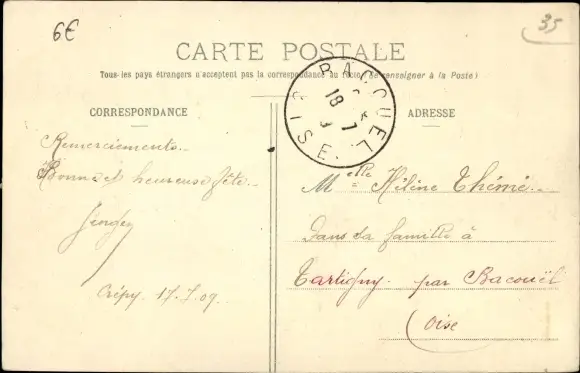 6€
35
CARTE POSTALE
Tous les pays étrangers n'acceptent pas la correspondance au recto (Se renseigner à la Poste)
CORRESPONDANCE
ADRESSE
BACOUEL
18 7
OISE
Remerciements.
Bonne et heureuse fête.
Crépy. 17.7.09.
Melle Hélène Thémé.
Dans sa famille à
Tartigny. par Bacouël
Oise